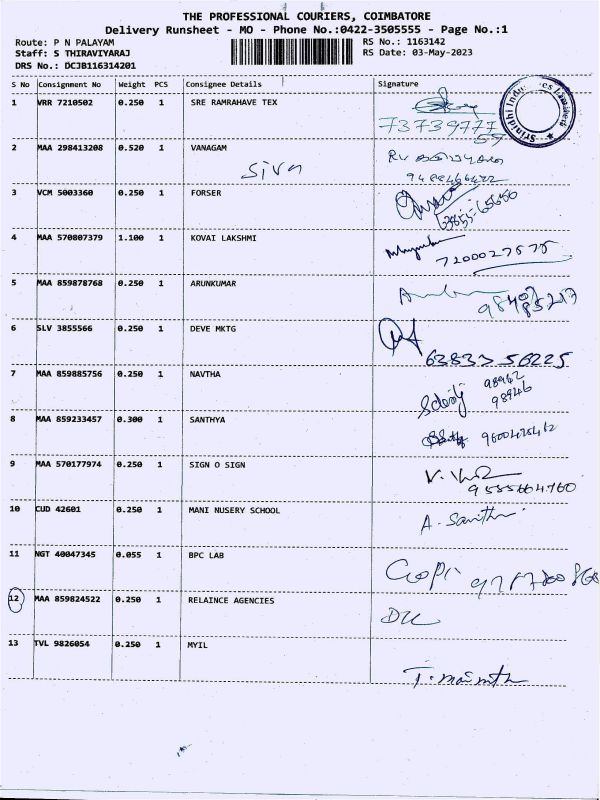 THE PROFESSIONAL COURIERS, COIMBATORE
Delivery Runsheet - MO - Phone No.:0422-3505555 - Page No.:1
Route: P N PALAYAM RS No.: 1163142
Staff: S THIRAVIYARAJ RS Date: 03-May-2023
DRS No.: DCJB116314201
S No Consignment No Weight PCS Consignee Details Signature
1 VRR 7210502 0.250 1 SRE RAMRAHAVE TEX
Srinidhi
2 MAA 298413208 0.520 1 VANAGAM
Siva
3 VCM 5003360 0.250 1 FORSER
63855-65650
4 MAA 570807379 1.100 1 KOVAI LAKSHMI
7200027575
5 MAA 859878768 0.250 1 ARUNKUMAR
6 SLV 3855566 0.250 1 DEVE MKTG
63833 56225
7 MAA 859885756 0.250 1 NAVTHA
98942
98946
8 MAA 859233457 0.300 1 SANTHYA
9 MAA 570177974 0.250 1 SIGN O SIGN
9585604760
10 CUD 42601 0.250 1 MANI NUSERY SCHOOL
A. Santhi
11 NGT 40047345 0.055 1 BPC LAB
Gopi
12 MAA 859824522 0.250 1 RELAINCE AGENCIES
13 TVL 9826054 0.250 1 MYIL